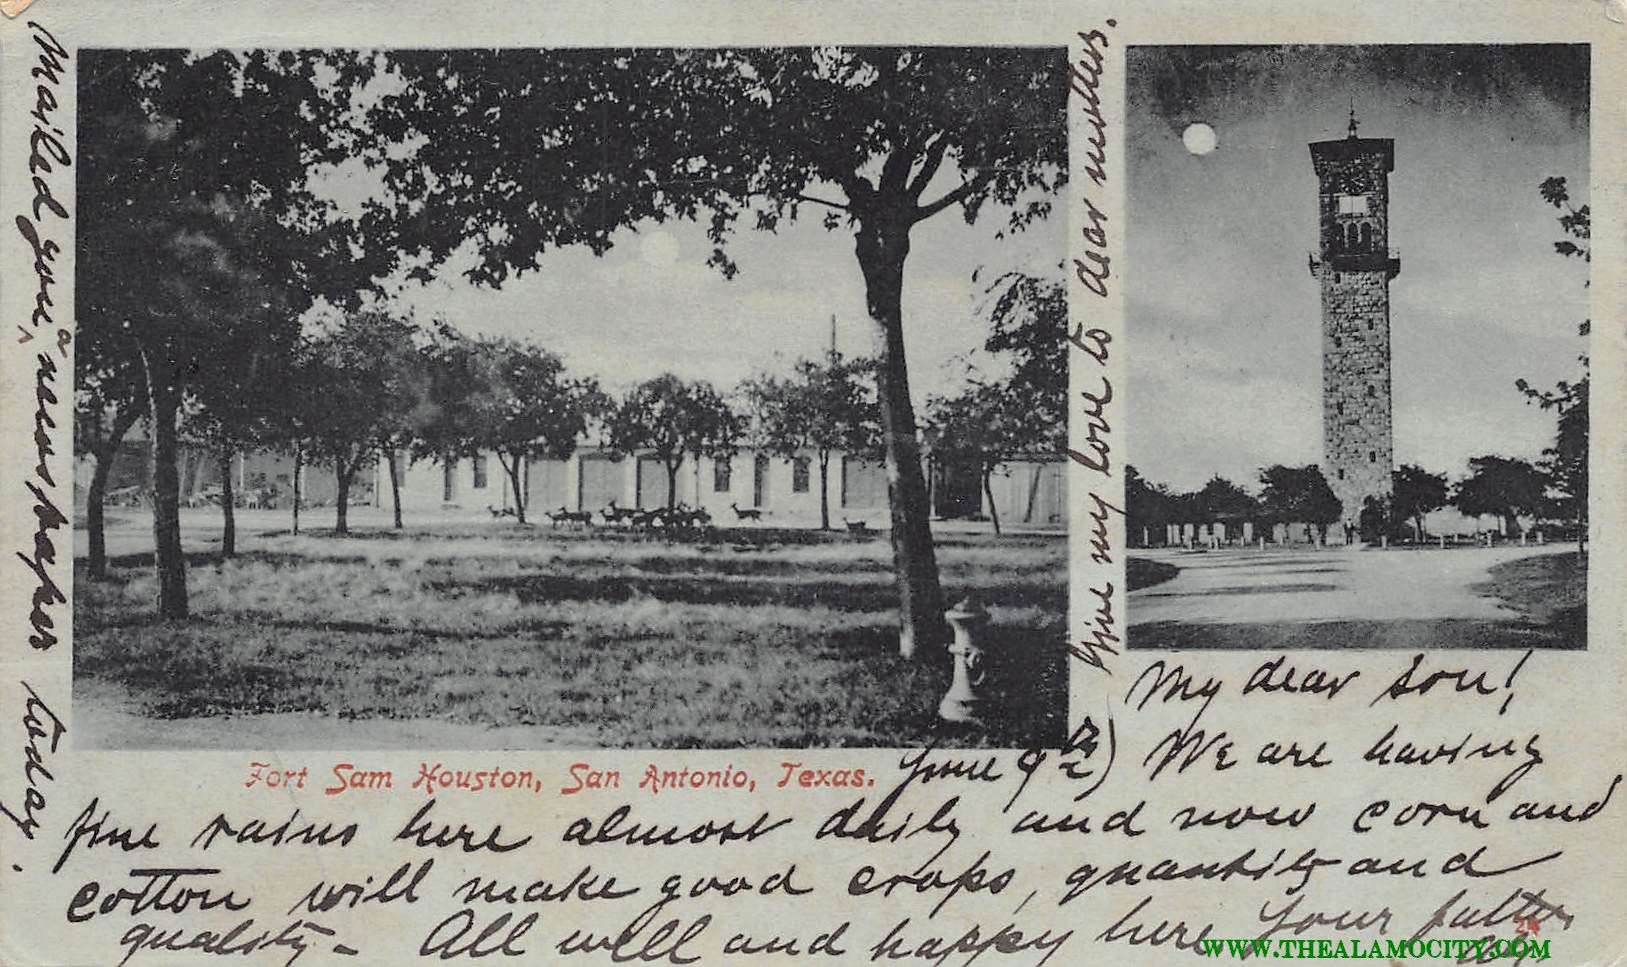 Fort Sam Houston, San Antonio, Texas.
June 9th) My dear son!
We are having
fine rains here almost daily and now corn and
cotton will make good crops, quantity and
quality - All well and happy here Your father
Give my love to dear mother.
Mailed you a newspaper today.
24
WWW.THEALAMOCITY.COM